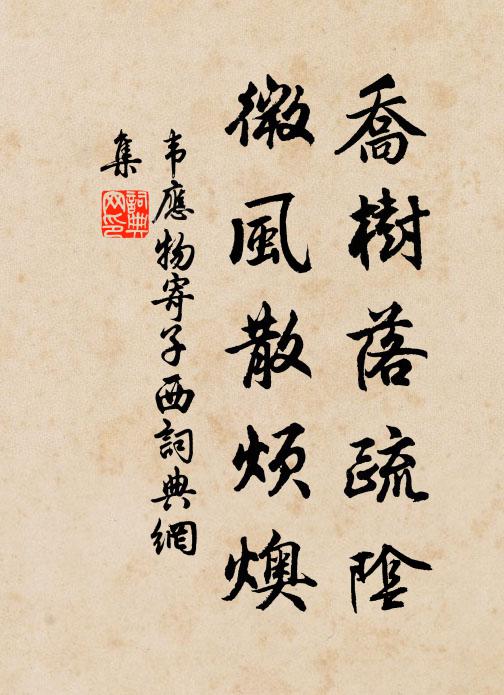 喬樹落疏陰
微風散煩燠
韦應物寄子西詞典網
集
詞典
网印